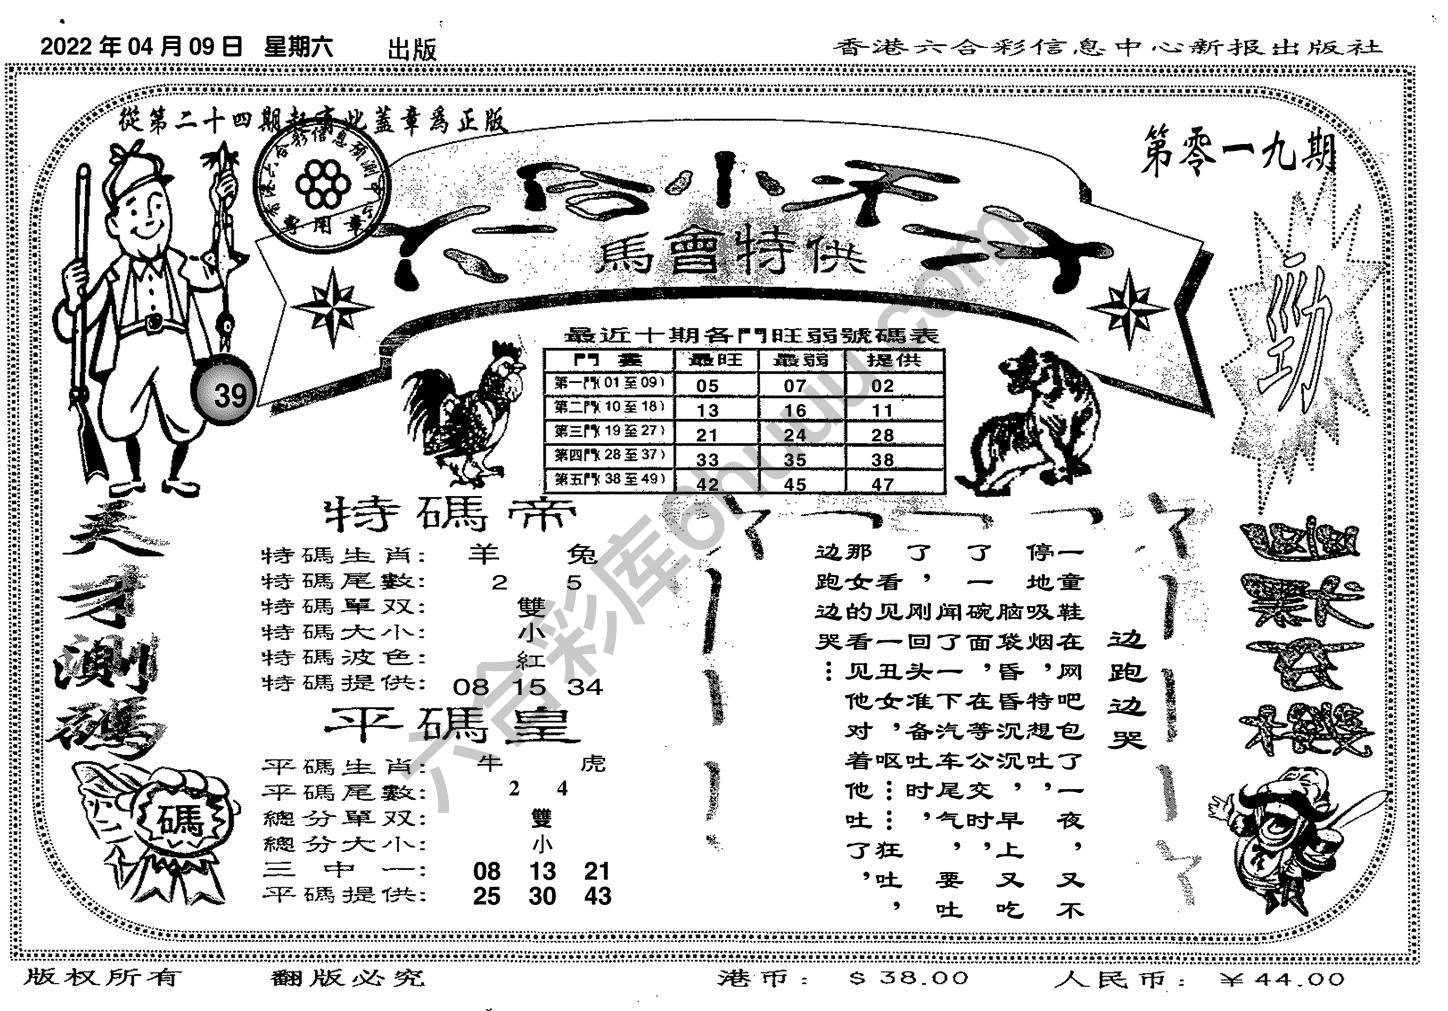 2022 年 04 月 09 日 星期六 出版
香港六合彩信息中心新报出版社
從第二十四期起有此蓋章爲正版
第零一九期
馬會特供
勁
39
最近十期各門旺弱號碼表
最旺 最弱 提供
第一門(01至09) 05 07 02
第二門(10至18) 13 16 11
第三門(19至27) 21 24 28
第四門(28至37) 33 35 38
第五門(38至49) 42 45 47
天才測碼
碼
特碼帝
特碼生肖: 羊 兔
特碼尾數: 2 5
特碼單双: 雙
特碼大小: 小
特碼波色: 紅
特碼提供: 08 15 34
平碼皇
平碼生肖: 牛 虎
平碼尾數: 2 4
總分單双: 雙
總分大小: 小
三中一: 08 13 21
平碼提供: 25 30 43
边跑边哭
一童鞋在网吧包了一夜,又不
停地吸烟,特想吐,
脑袋昏昏沉沉,早上又吃
了一碗面,在等公交时,
闻了一下汽车尾气,要吐
了,刚回头准备吐时,
看见一丑女,呕……狂吐,
那女的看见他对着他吐了,
边跑边哭…
版权所有 翻版必究 港币: $ 38.00 人民币: ¥ 44.00
六合彩库6huuu.com